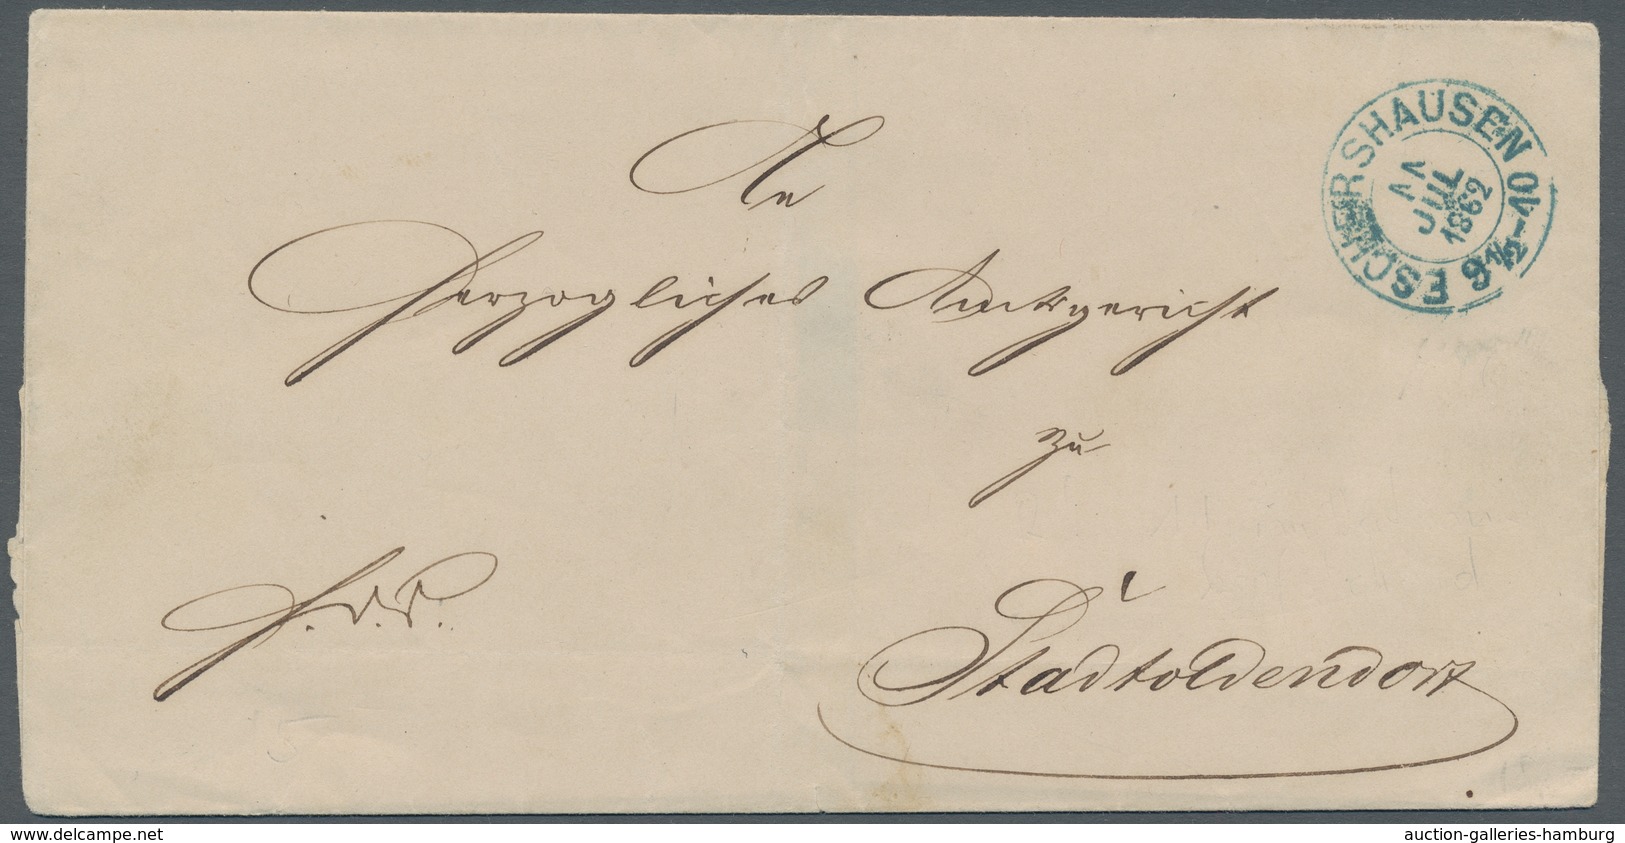 An
Herzogliches Amtsgericht
zu
Stadtoldendorf
H. d. S.
ESCHERSHAUSEN 9½-10
11
JUL
1862
www.delcampe.net
auction-galleries-hamburg